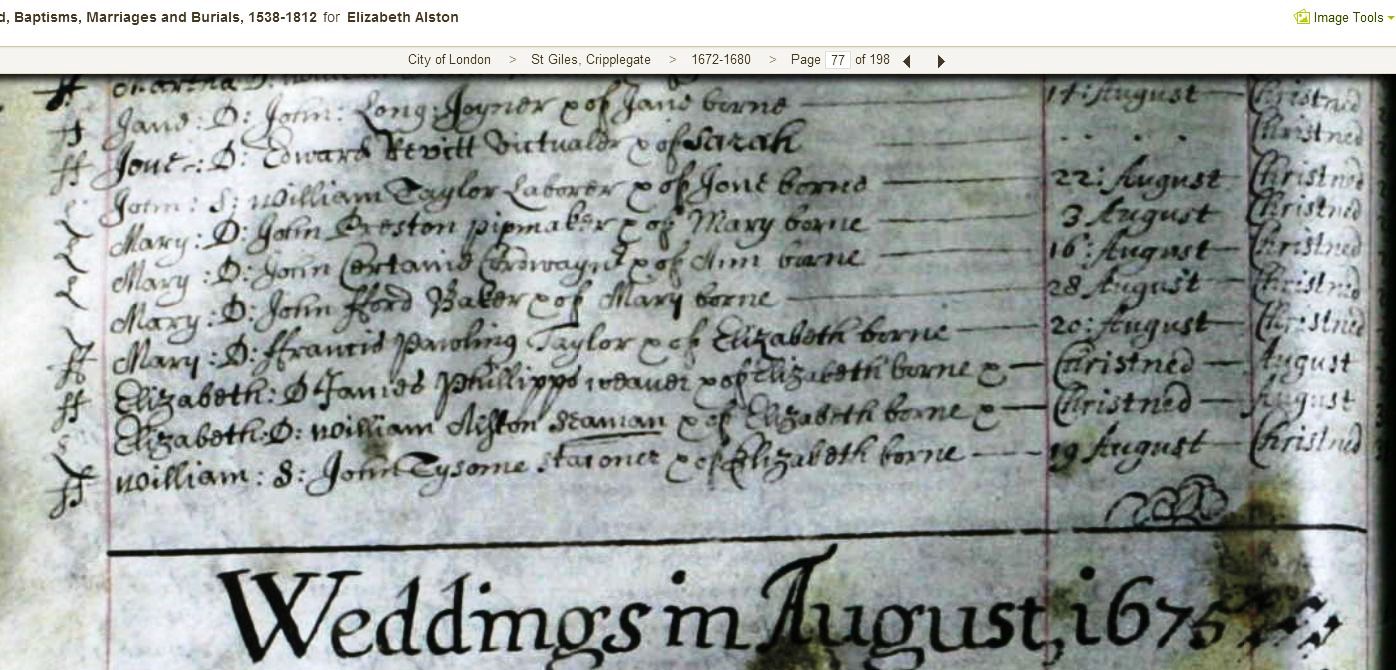 d, Baptisms, Marriages and Burials, 1538-1812 for Elizabeth Alston
Image Tools
City of London > St Giles, Cripplegate > 1672-1680 > Page 77 of 198
Jane: D: John: Long Joyner x of Jane borne 17: August Christned
Jone: D: Edward Revitt Victualer x of Sarah Christned
John: S: William Taylor Laborer x of Jone borne 22: August Christned
Mary: D: John Preston pipmaker x of Mary borne 3 August Christned
Mary: D: John x of Ann borne 16: August Christned
Mary: D: John fford Baker x of Mary borne 28 August Christned
Mary: D: ffrancis Pawling Taylor x of Elizabeth borne 20: August Christned
Elizabeth: D James Phillipps weaver x of Elizabeth borne x Christned August
Elizabeth: D: William Alston Seaman x of Elizabeth borne x Christned August
William: S: John Tysome x of Elizabeth borne 19 August Christned
Weddings in August, 1675